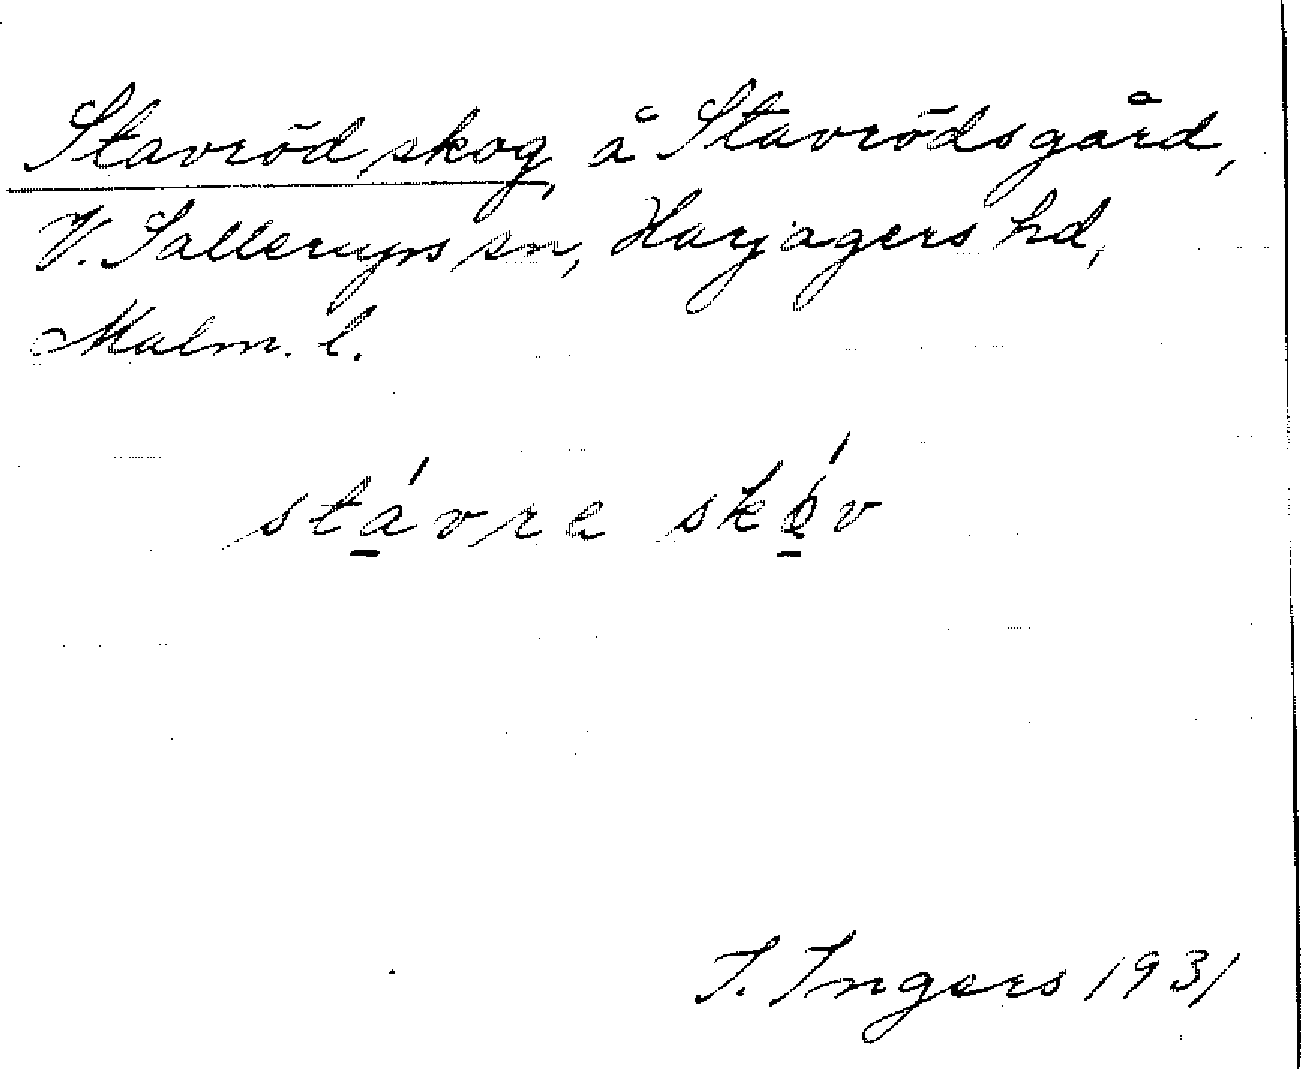 Stavröd skog, å Stavrödsgård,
V. Sallerups sn, Harjagers hd,
Malm. l.
stávre skóv
I. Ingers 1931